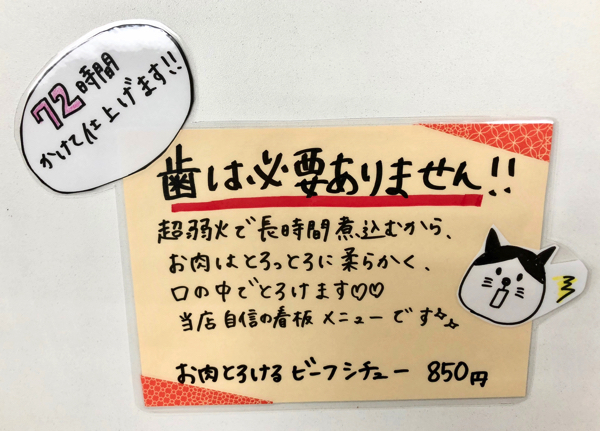 72時間
かけて仕上げます!!
歯は必要ありません!!
超弱火で長時間煮込むから、
お肉はとろっとろに柔らかく、
口の中でとろけます♡♡
当店自信の看板メニューです✨
お肉とろける ビーフシチュー 850円